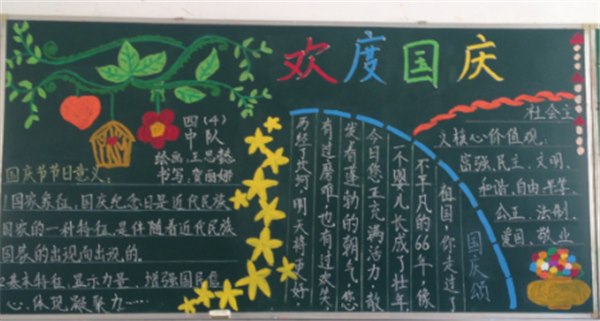 欢度国庆
四(4)
中队
绘画:王思懿
书写:贾丽娜
国庆节节日意义:
1国家象征,国庆纪念日是近代民族
国家的一种特征,是伴随着近代民族
国家的出现而出现的。
特征,显示力量,增强国民信
心,体现凝聚力……
国庆颂
祖国,你走过了
不平凡的66年,像
一个婴儿长成了壮年,
今日您正充满活力,散
发着蓬勃的朝气,您
有过磨难,也有过欢笑,
历经了长河,明天将更好
社会主
义核心价值观:
富强、民主、文明、
和谐、自由、平等、
公正、法制、
爱国、敬业